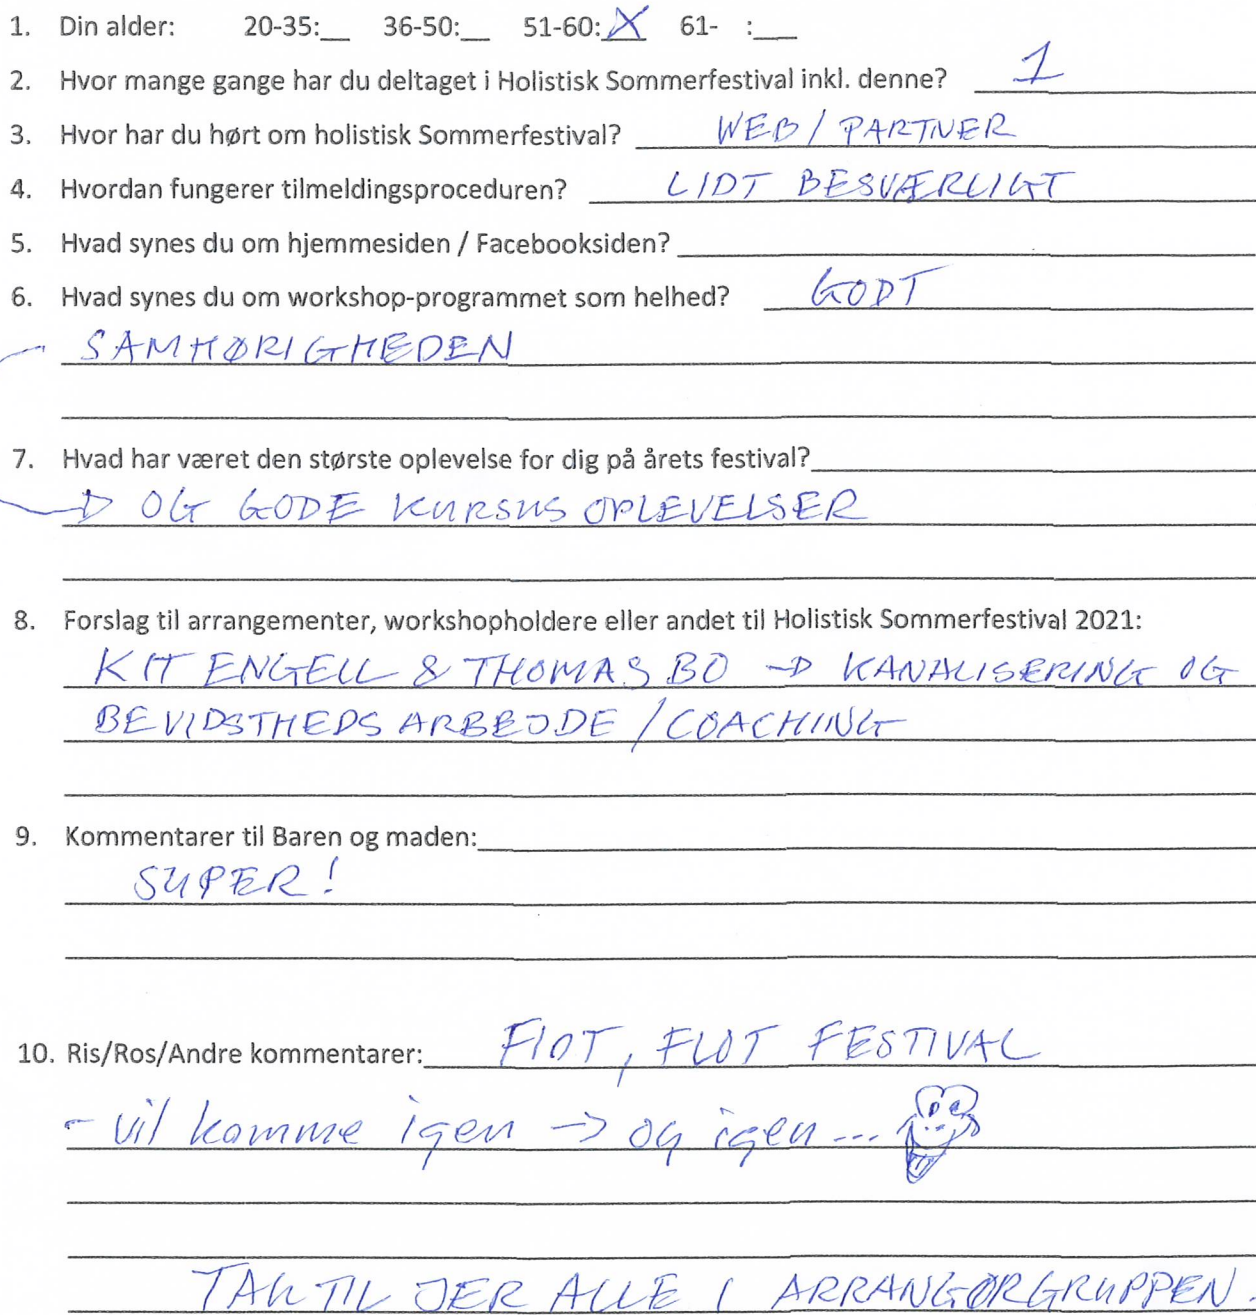 1. Din alder: 20-35:__ 36-50:__ 51-60: X 61- :__
2. Hvor mange gange har du deltaget i Holistisk Sommerfestival inkl. denne? 1
3. Hvor har du hørt om holistisk Sommerfestival? WEB / PARTNER
4. Hvordan fungerer tilmeldingsproceduren? LIDT BESVÆRLIGT
5. Hvad synes du om hjemmesiden / Facebooksiden?
6. Hvad synes du om workshop-programmet som helhed? GODT
SAMHØRIGHEDEN
7. Hvad har været den største oplevelse for dig på årets festival?
→ OG GODE KURSUS OPLEVELSER
8. Forslag til arrangementer, workshopholdere eller andet til Holistisk Sommerfestival 2021:
KIT ENGELL & THOMAS BO → KANALISERING OG
BEVIDSTHEDS ARBEJDE / COACHING
9. Kommentarer til Baren og maden:
SUPER!
10. Ris/Ros/Andre kommentarer: FlOT, FLOT FESTIVAL
- vil komme igen → og igen...
TAK TIL JER ALLE I ARRANGØRGRUPPEN